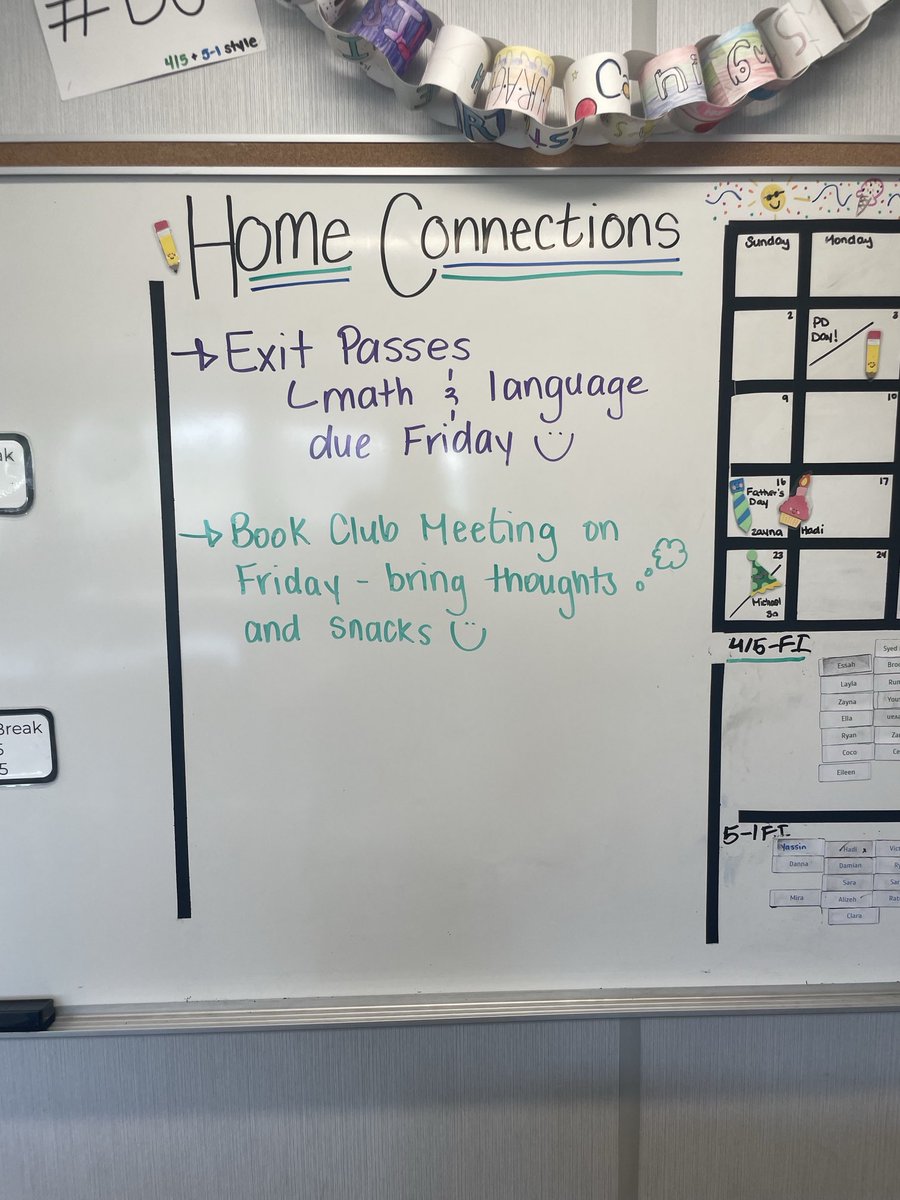 415 + 5-1 style
Cani
Gu
Home Connections
Exit Passes
math & language
due Friday
Book Club Meeting on
Friday - bring thoughts
and snacks
Sunday Monday
2
PD
Day!
9 10
16 17
Father's
Day
Zayna Hadi
23 24
Michael
30
Break
5
4/5-FI
Essah
Layla
Zayna
Ella
Ryan
Coco
Eileen
Syed
5-1 FI
Yassin Hadi
Danna Damian
Sara
Mira Alizeh
Clara